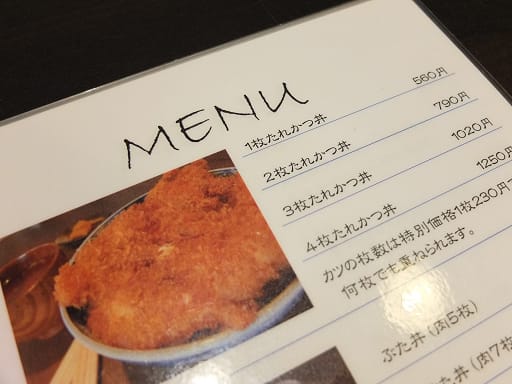 MENU
1枚たれかつ丼 560円
2枚たれかつ丼 790円
3枚たれかつ丼 1020円
4枚たれかつ丼 1250円
カツの枚数は特別価格1枚230円で
何枚でも重ねられます。
ぶた丼(肉5枚)
丼(肉7枚